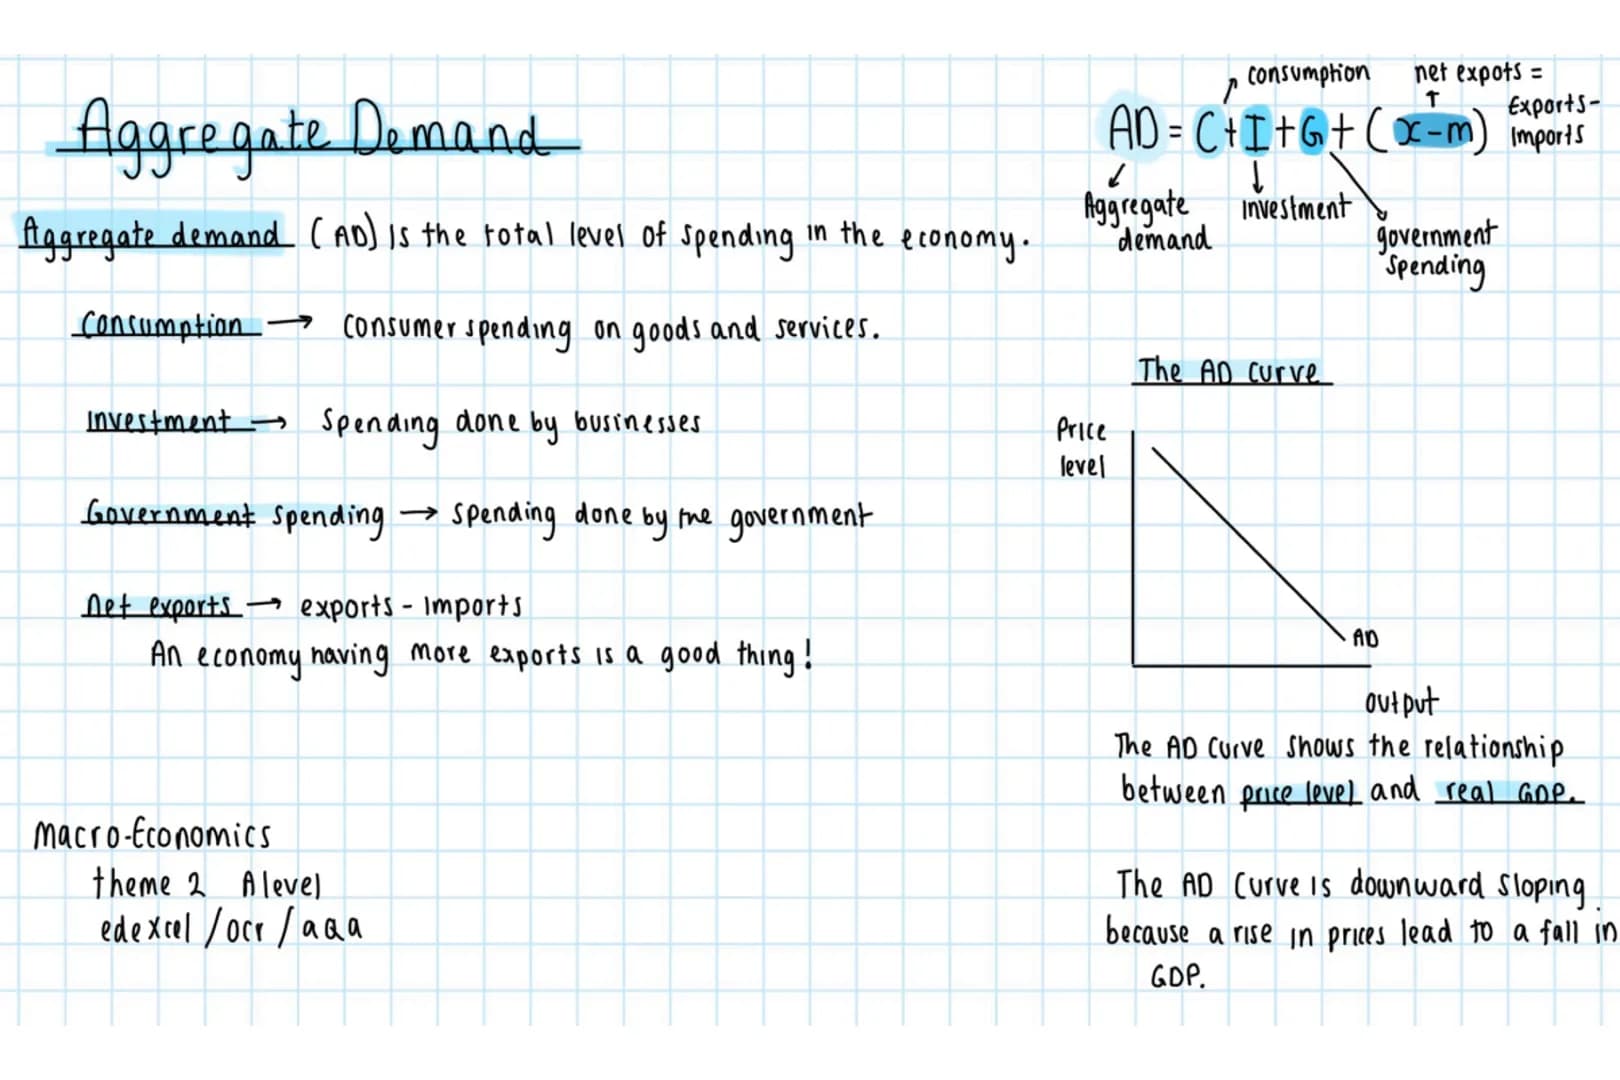 Aggregate Demand
Aggregate demand (AD) is the total level of spending in the economy.
Consumption → Consumer spending on goods and services.
Investment → Spending done by businesses
Government Spending → Spending done by the government
net exports → exports - imports
An economy having more exports is a good thing!
Macro-Economics
theme 2 A level
edexcel / ocr / aQa
consumption
net expots =
Exports-
Imports
AD = C+I+G+(x-m)
Aggregate
demand
investment
government
Spending
The AD curve
Price
level
AD
output
The AD Curve shows the relationship
between price level and real GDP.
The AD Curve is downward sloping
because a rise in prices lead to a fall in
GDP.